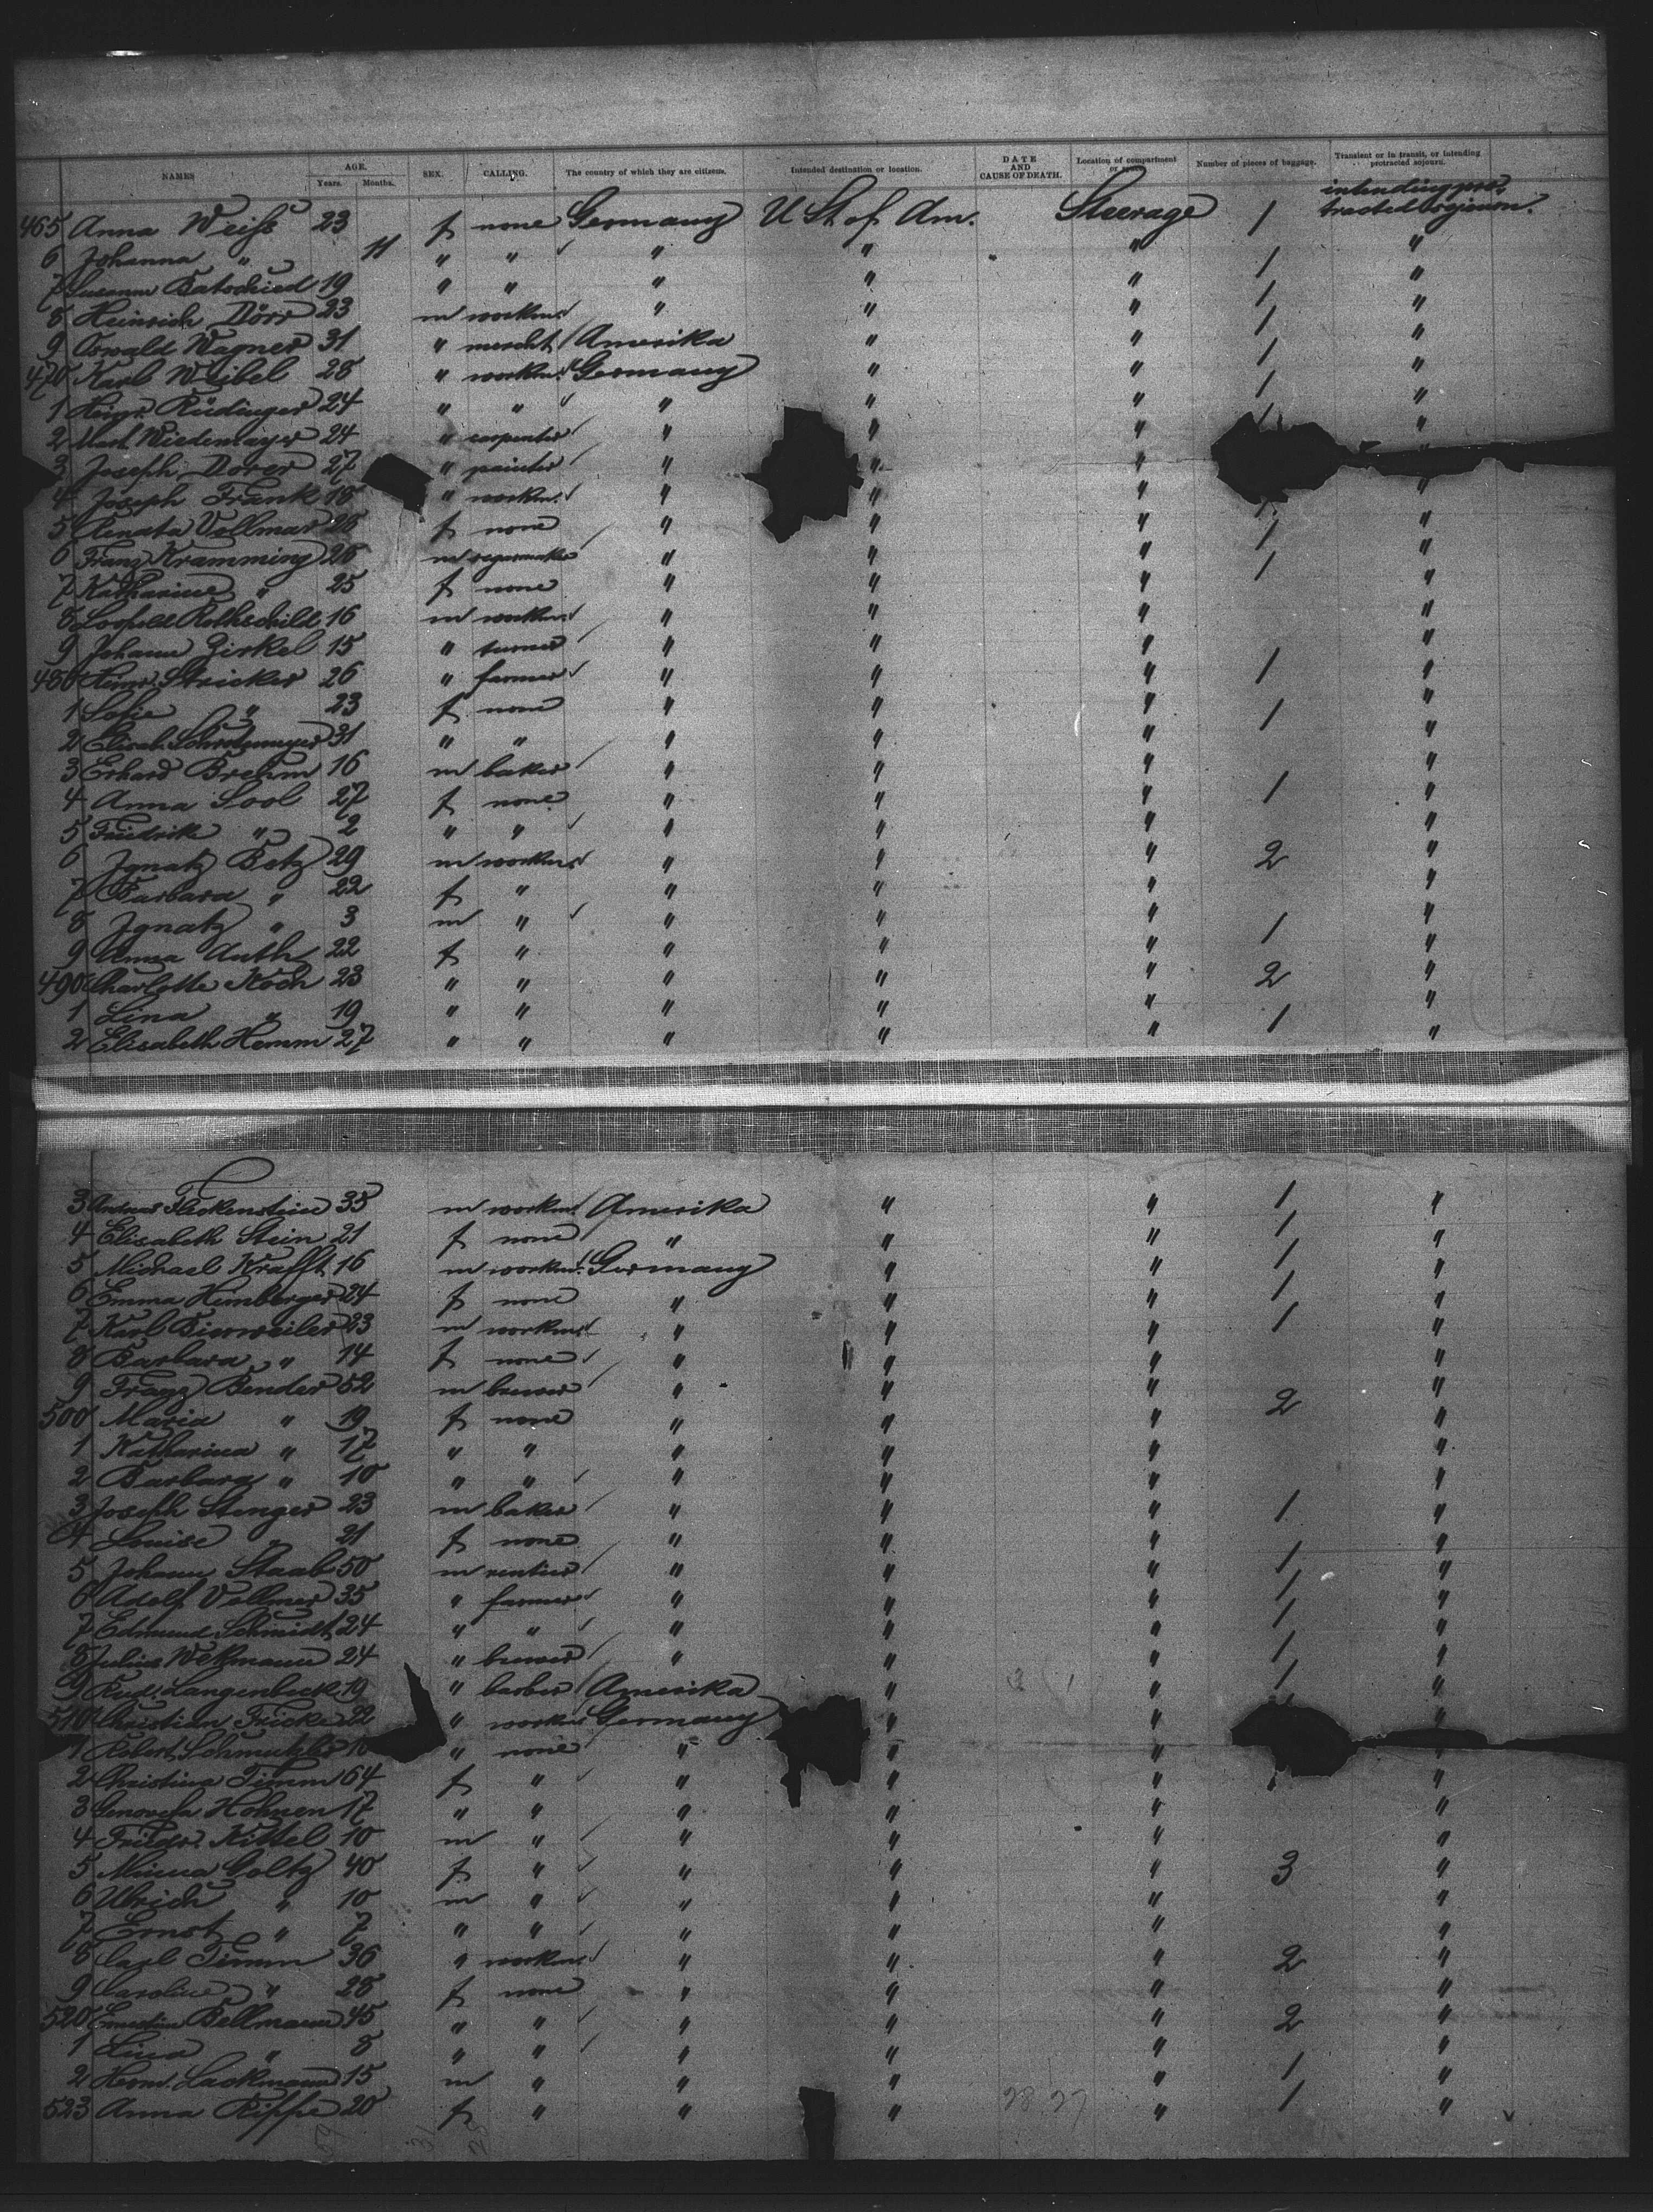 NAMES AGE. Years. Months. SEX. CALLING. The country of which they are citizens. Intended destination or location. DATE AND CAUSE OF DEATH. Location of compartment or space. Number of pieces of baggage. Transient or in transit, or intending protracted sojourn.
465 Anna Weiss 23 f none Germany U St of Am. Steerage 1 intending protracted sojourn.
6 Johanna " 11 " " " " " "
7 Susanna 19 " " " " " 1 "
8 Heinrich Dörr 23 m workm. " " " 1 "
9 Oswald Wagner 31 " mercht Amerika " " 1 "
470 Karl Weibel 28 " workm. Germany " " 1 "
1 Heinr. Rüdinger 24 " " " " " 1 "
2 Mart. Wiedemayer 24 " carpenter " " " "
3 Joseph Dorer 27 " painter " " "
4 Joseph Frank 18 " workm. " " " "
5 Renata Vollmar 26 f none " " " 1 "
6 Franz Kramming 26 m " " " 1 "
7 Katharine " 25 f none " " " "
8 Leopold Rothschild 16 m workm. " " " "
9 Johann Zirkel 15 " turner " " " "
480 Heinr. Stricker 26 " farmer " " " 1 "
1 Sofie " 23 f none " " " "
2 Elisab. 31 " " " " " 1 "
3 Erhard Brehm 16 m baker " " " "
4 Anna Sool 27 f none " " " 1 "
5 Friedrike " 2 " " " " " "
6 Ignatz Betz 29 m workm. " " " 2 "
7 Barbara " 22 f " " " " "
8 Ignatz " 3 m " " " " "
9 Anna Auth 22 f " " " " 1 "
490 Charlotte Koch 23 " " " " " 2 "
1 Lina " 19 " " " " " "
2 Elisabeth Hemm 27 " " " " " 1 "
3 Andreas Fleckenstein 38 m workm. Amerika " " 1 "
4 Elisabeth Stein 21 f none " " " 1 "
5 Michael Krafft 16 m workm. Germany " " 1 "
6 Emma Himberger 24 f none " " " 1 "
7 Karl Bierweiler 23 m workm. " " " 1 "
8 Barbara " 14 f none " " " "
9 Franz Bender 52 m brewer " " " 2 "
500 Maria " 19 f none " " " "
1 Katharina " 17 " " " " " "
2 Barbara " 10 " " " " " "
3 Joseph Stenger 23 m baker " " " 1 "
4 Louise " 21 f none " " " "
5 Johann Staab 50 m rentier " " " 1 "
6 Adolf Vollmer 35 " farmer " " " 1 "
7 Edmund Schmidt 24 " " " " " 1 "
8 Julius 24 " brewer " " " 1 "
9 Rud. Langenbeck 19 " barber Amerika " " 1 "
510 Christian Fricke 22 " workm. Germany " " "
1 Robert Schmutzler " none " " " "
2 Christina Timm 64 f " " " " "
3 Genovefa Hohnen 17 " " " " " "
4 Friedr. Kittel 10 m " " " " "
5 Minna Goltz 40 f " " " " 3 "
6 Ulrich " 10 m " " " " "
7 Ernst " 7 " " " " " "
8 Carl Timm 36 " workm. " " " 2 "
9 Caroline " 28 f none " " " "
520 Ernestine Bellmann 45 " " " " " 2 "
1 Lina " 8 " " " " " "
2 Herm. Lackmann 15 m " " " " 1 "
523 Anna Rippe 20 f " " " " 1 "